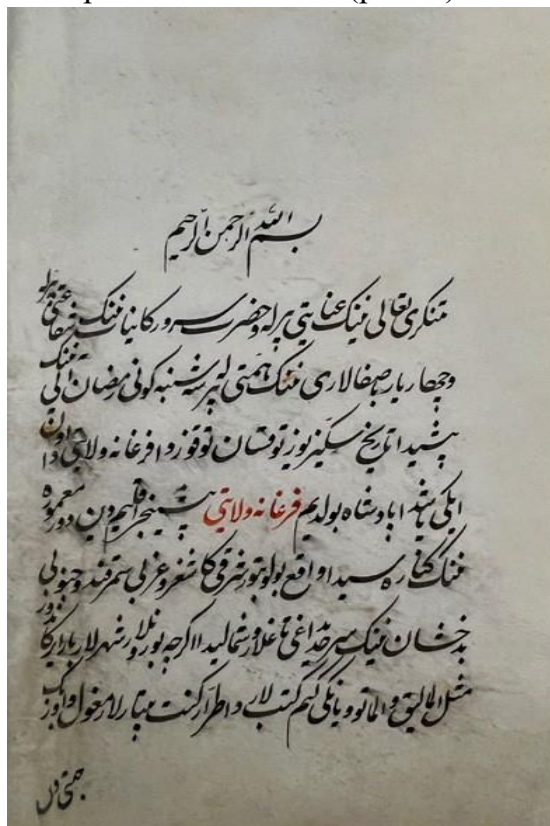 بسم الله الرحمن الرحیم
تنکری تعالی نینک عنایتی بیرله و حضرت سرور کاینات نینک شفاعتی بیرله
و چهار یار باصفالاری نینک همتی بیرله سه شنبه کونی رمضان آیی نینک
بیشیدا تاریخ سکیز یوز توقسان توقوزدا فرغانه ولایتیدا اون
ایکی یاشدا پادشاه بولدیم فرغانه ولایتی بیشینجی اقلیم دین دور معموره
نینک کناره سیدا واقع بولوبتور شرقی کاشغر و غربی سمرقند و جنوبی
بدخشان نینک سرحدیداغی تاغلار و شمالیدا اکرچه بورونلار شهرلار بار ایرکاندور
مثل المالیق و الماتو و یانکی کیم کتب لاردا اطرارکنت بیتارلار مغول و اوزبک
جهتی دن